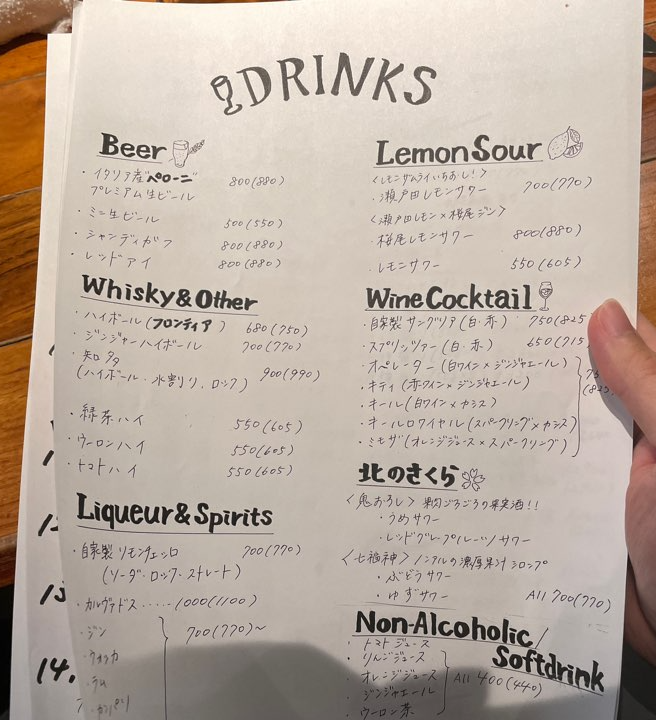 DRINKS
Beer
・イタリア産"ペローニ"
プレミアム生ビール 800(880)
・ミニ生ビール 500(550)
・シャンディガフ 800(880)
・レッドアイ 800(880)
Whisky&Other
・ハイボール(フロンティア) 680(750)
・ジンジャーハイボール 700(770)
・知多
(ハイボール・水割り・ロック) 900(990)
・緑茶ハイ 550(605)
・ウーロンハイ 550(605)
・トマトハイ 550(605)
Liqueur&Spirits
・自家製リモンチェッロ 700(770)
(ソーダ・ロック・ストレート)
・カルヴァドス.....1000(1100)
・ジン
・ウォッカ
・ラム
・カンパリ
700(770)~
Lemon Sour
<レモンザムライいちおし!>
・瀬戸田レモンサワー 700(770)
<瀬戸田レモン×桜尾ジン>
・桜尾レモンサワー 800(880)
・レモンサワー 550(605)
Wine Cocktail
・自家製サングリア(白・赤) 750(825
・スプリッツァー(白・赤) 650(715
・オペレーター(白ワイン×ジンジャエール)
・キティ(赤ワイン×ジンジャエール)
・キール(白ワイン×カシス)
・キールロワイヤル(スパークリング×カシス)
・ミモザ(オレンジジュース×スパークリング)
(825
北のさくら
<鬼おろし>果肉ごろごろの果実酒!!
・うめサワー
・レッドグレープフルーツサワー
<七福神>ノンアルの濃厚果汁シロップ
・ぶどうサワー
・ゆずサワー All 700(770)
Non-Alcoholic/
Softdrink
・トマトジュース
・りんごジュース
・オレンジジュース
・ジンジャエール
・ウーロン茶
All 400(440)
14.